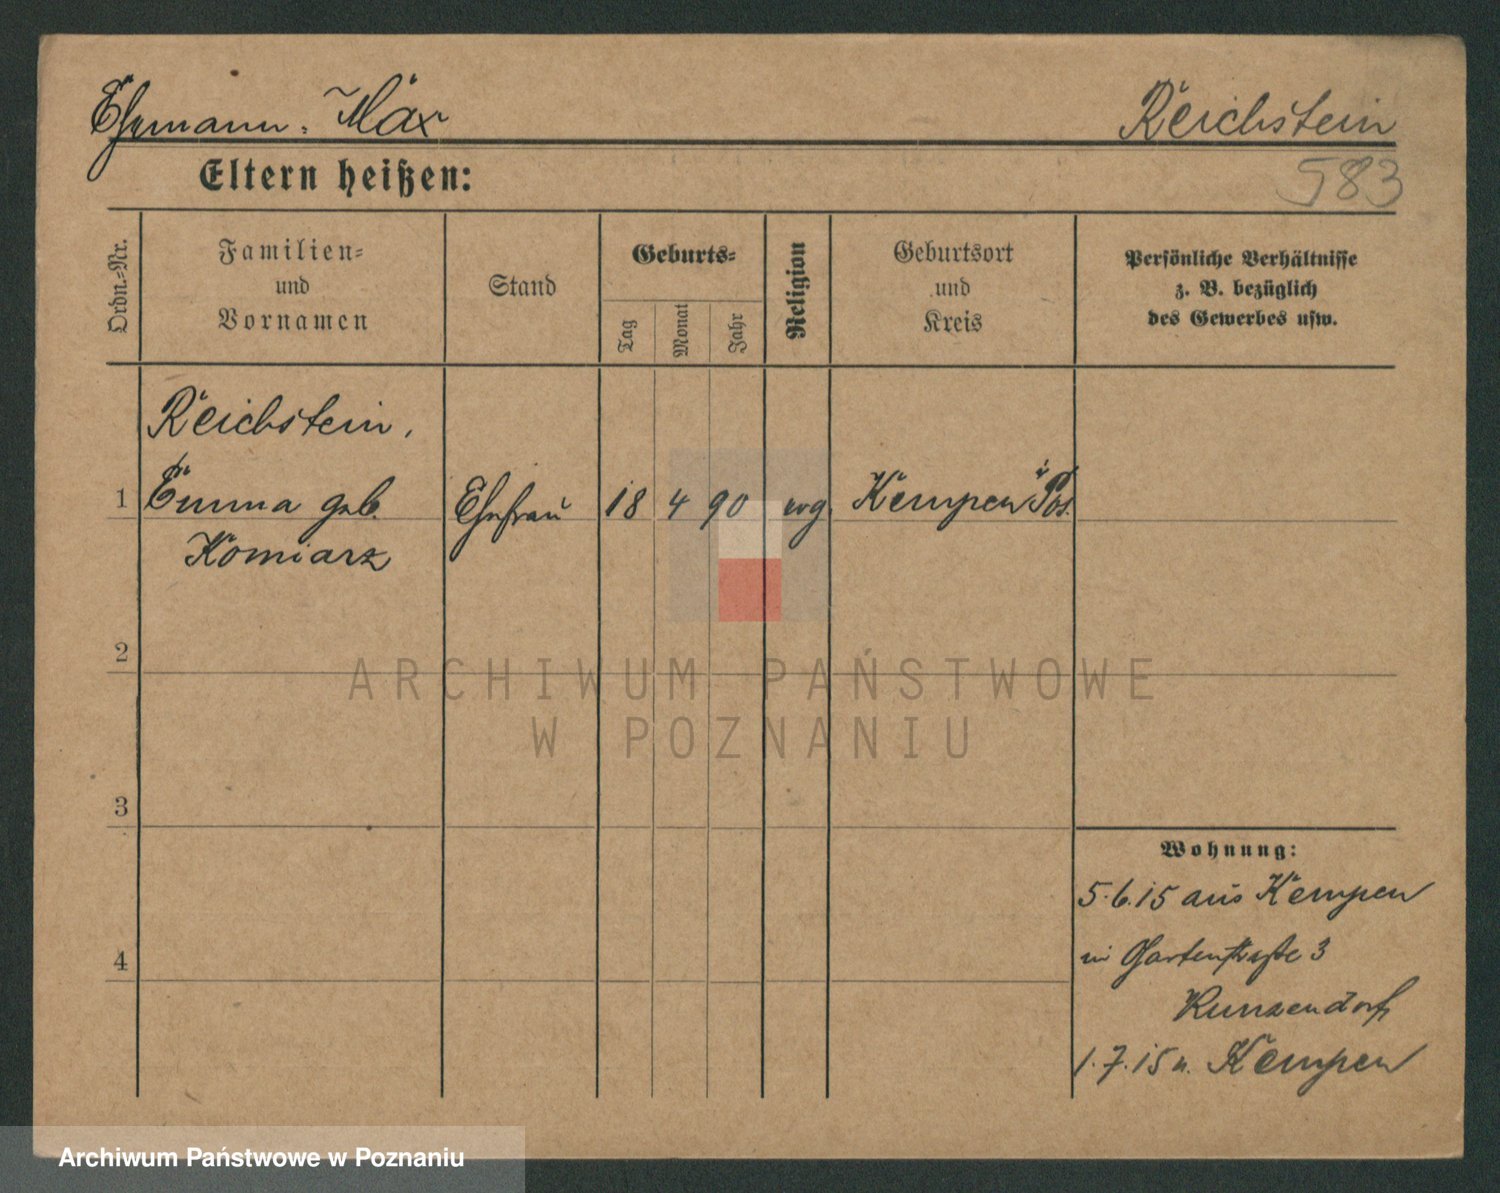 Ehemann: Max
Reichstein
583
Eltern heißen:
Ordn.-Nr.
Familien-
und
Vornamen
Stand
Geburts-
Tag
Monat
Jahr
Religion
Geburtsort
und
Kreis
Persönliche Verhältnisse
z. B. bezüglich
des Gewerbes usw.
Reichstein,
1 Emma geb. Ehefrau 18 4 90 evg. Kempen Pos.
Komiarz
2
3
4
Wohnung:
5.6.15 aus Kempen
in Gartenstraße 3
Kunzendorf
1.7.15 n. Kempen
ARCHIWUM PAŃSTWOWE
W POZNANIU
Archiwum Państwowe w Poznaniu